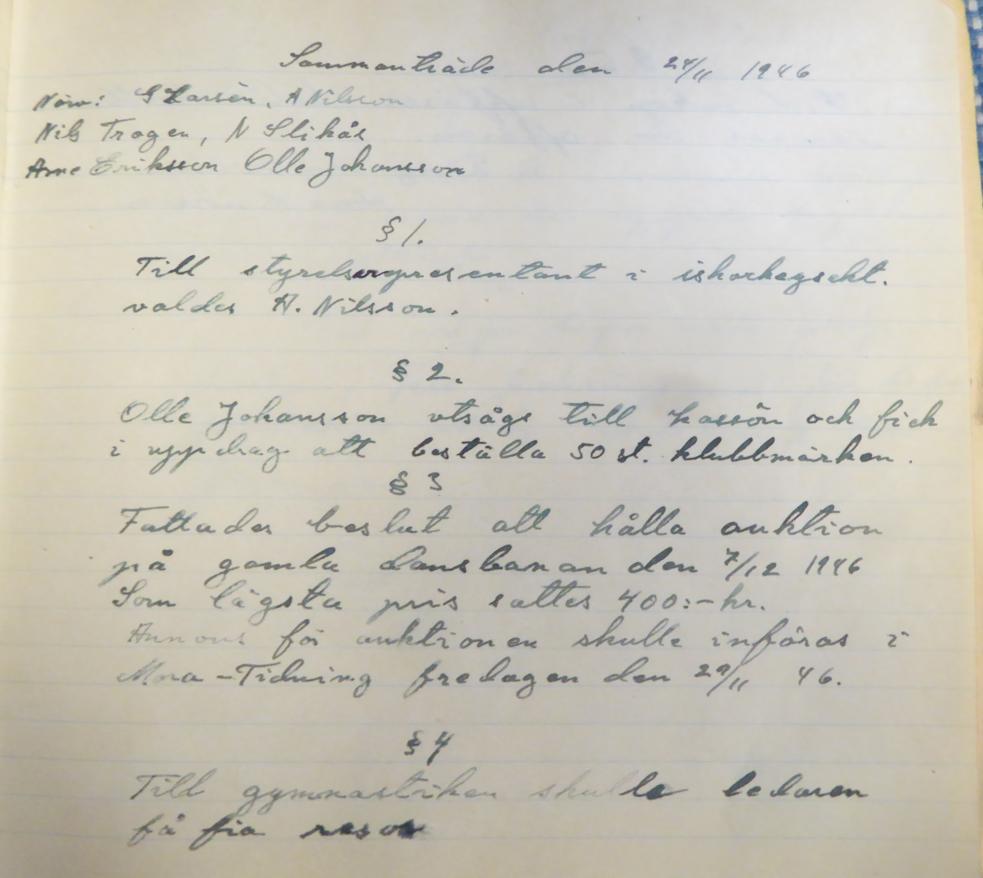 Sammanträde den 24/11 1946
Närv: G Larsén, A Nilsson
Nils Trogen, N Slikås
Arne Eriksson Olle Johansson
§ 1.
Till styrelserepresentant i ishockeysekt.
valdes A. Nilsson.
§ 2.
Olle Johansson utsågs till kassör och fick
i uppdrag att beställa 50 st. klubbmärken.
§ 3
Fattades beslut att hålla auktion
på gamla dansbanan den 7/12 1946
Som lägsta pris sattes 400:- kr.
Annons för auktionen skulle införas i
Mora-Tidning fredagen den 29/11 46.
§ 4
Till gymnastiken skulle ledaren
få fria resor